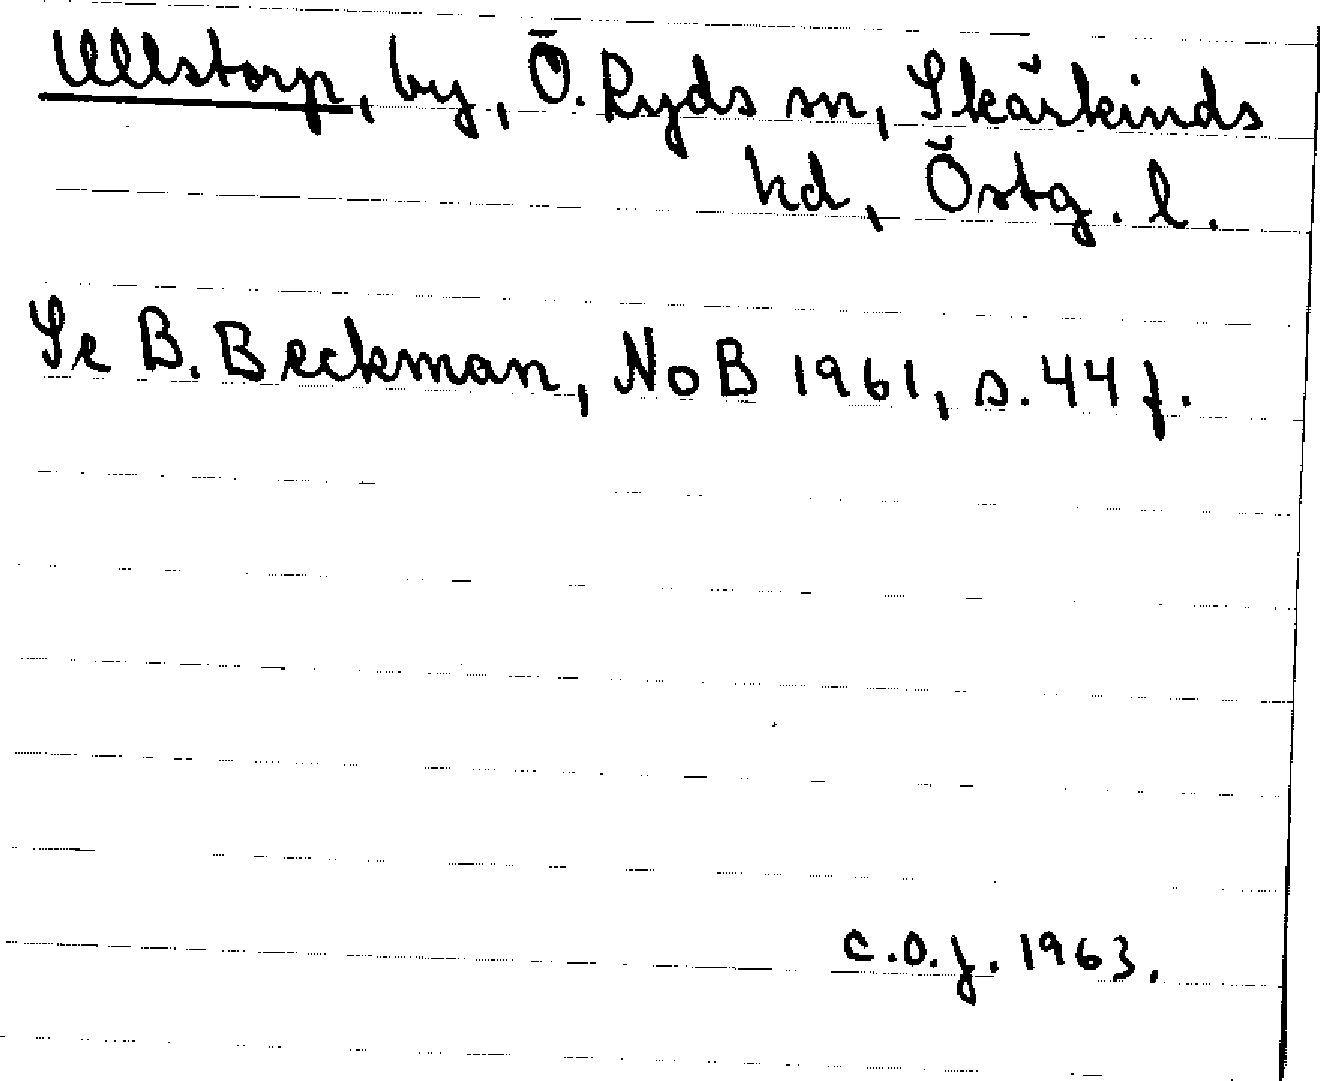 Ullstorp, by, Ö. Ryds sn, Skärkinds
hd, Östg. l.
Se B. Beckman, NoB 1961, s. 44 f.
C.O.J. 1963.